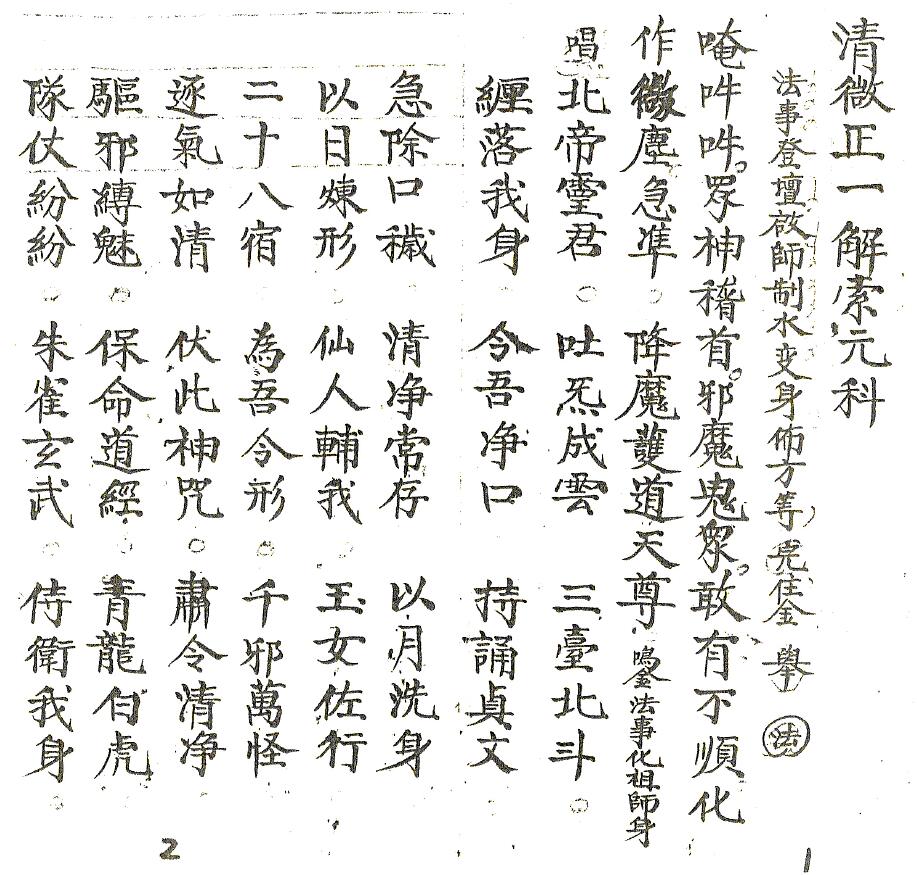 清微正一解索元科
法事登壇啟師制水变身佈方等完住金 舉 法
唵吽吽眾神稽首邪魔鬼眾敢有不順化
作微塵急準 降魔護道天尊 鳴金法事化祖師身
唱北帝靈君 吐炁成雲 三臺北斗
纏落我身 令吾净口 持誦真文
急除口穢 清净常存 以月洗身
以日煉形 仙人輔我 玉女佐行
二十八宿 為吾令形 千邪萬怪
逐氣如清 伏此神咒 肅令清净
驅邪縛魅 保命道經 青龍白虎
隊仗紛紛 朱雀玄武 侍衛我身
1
2